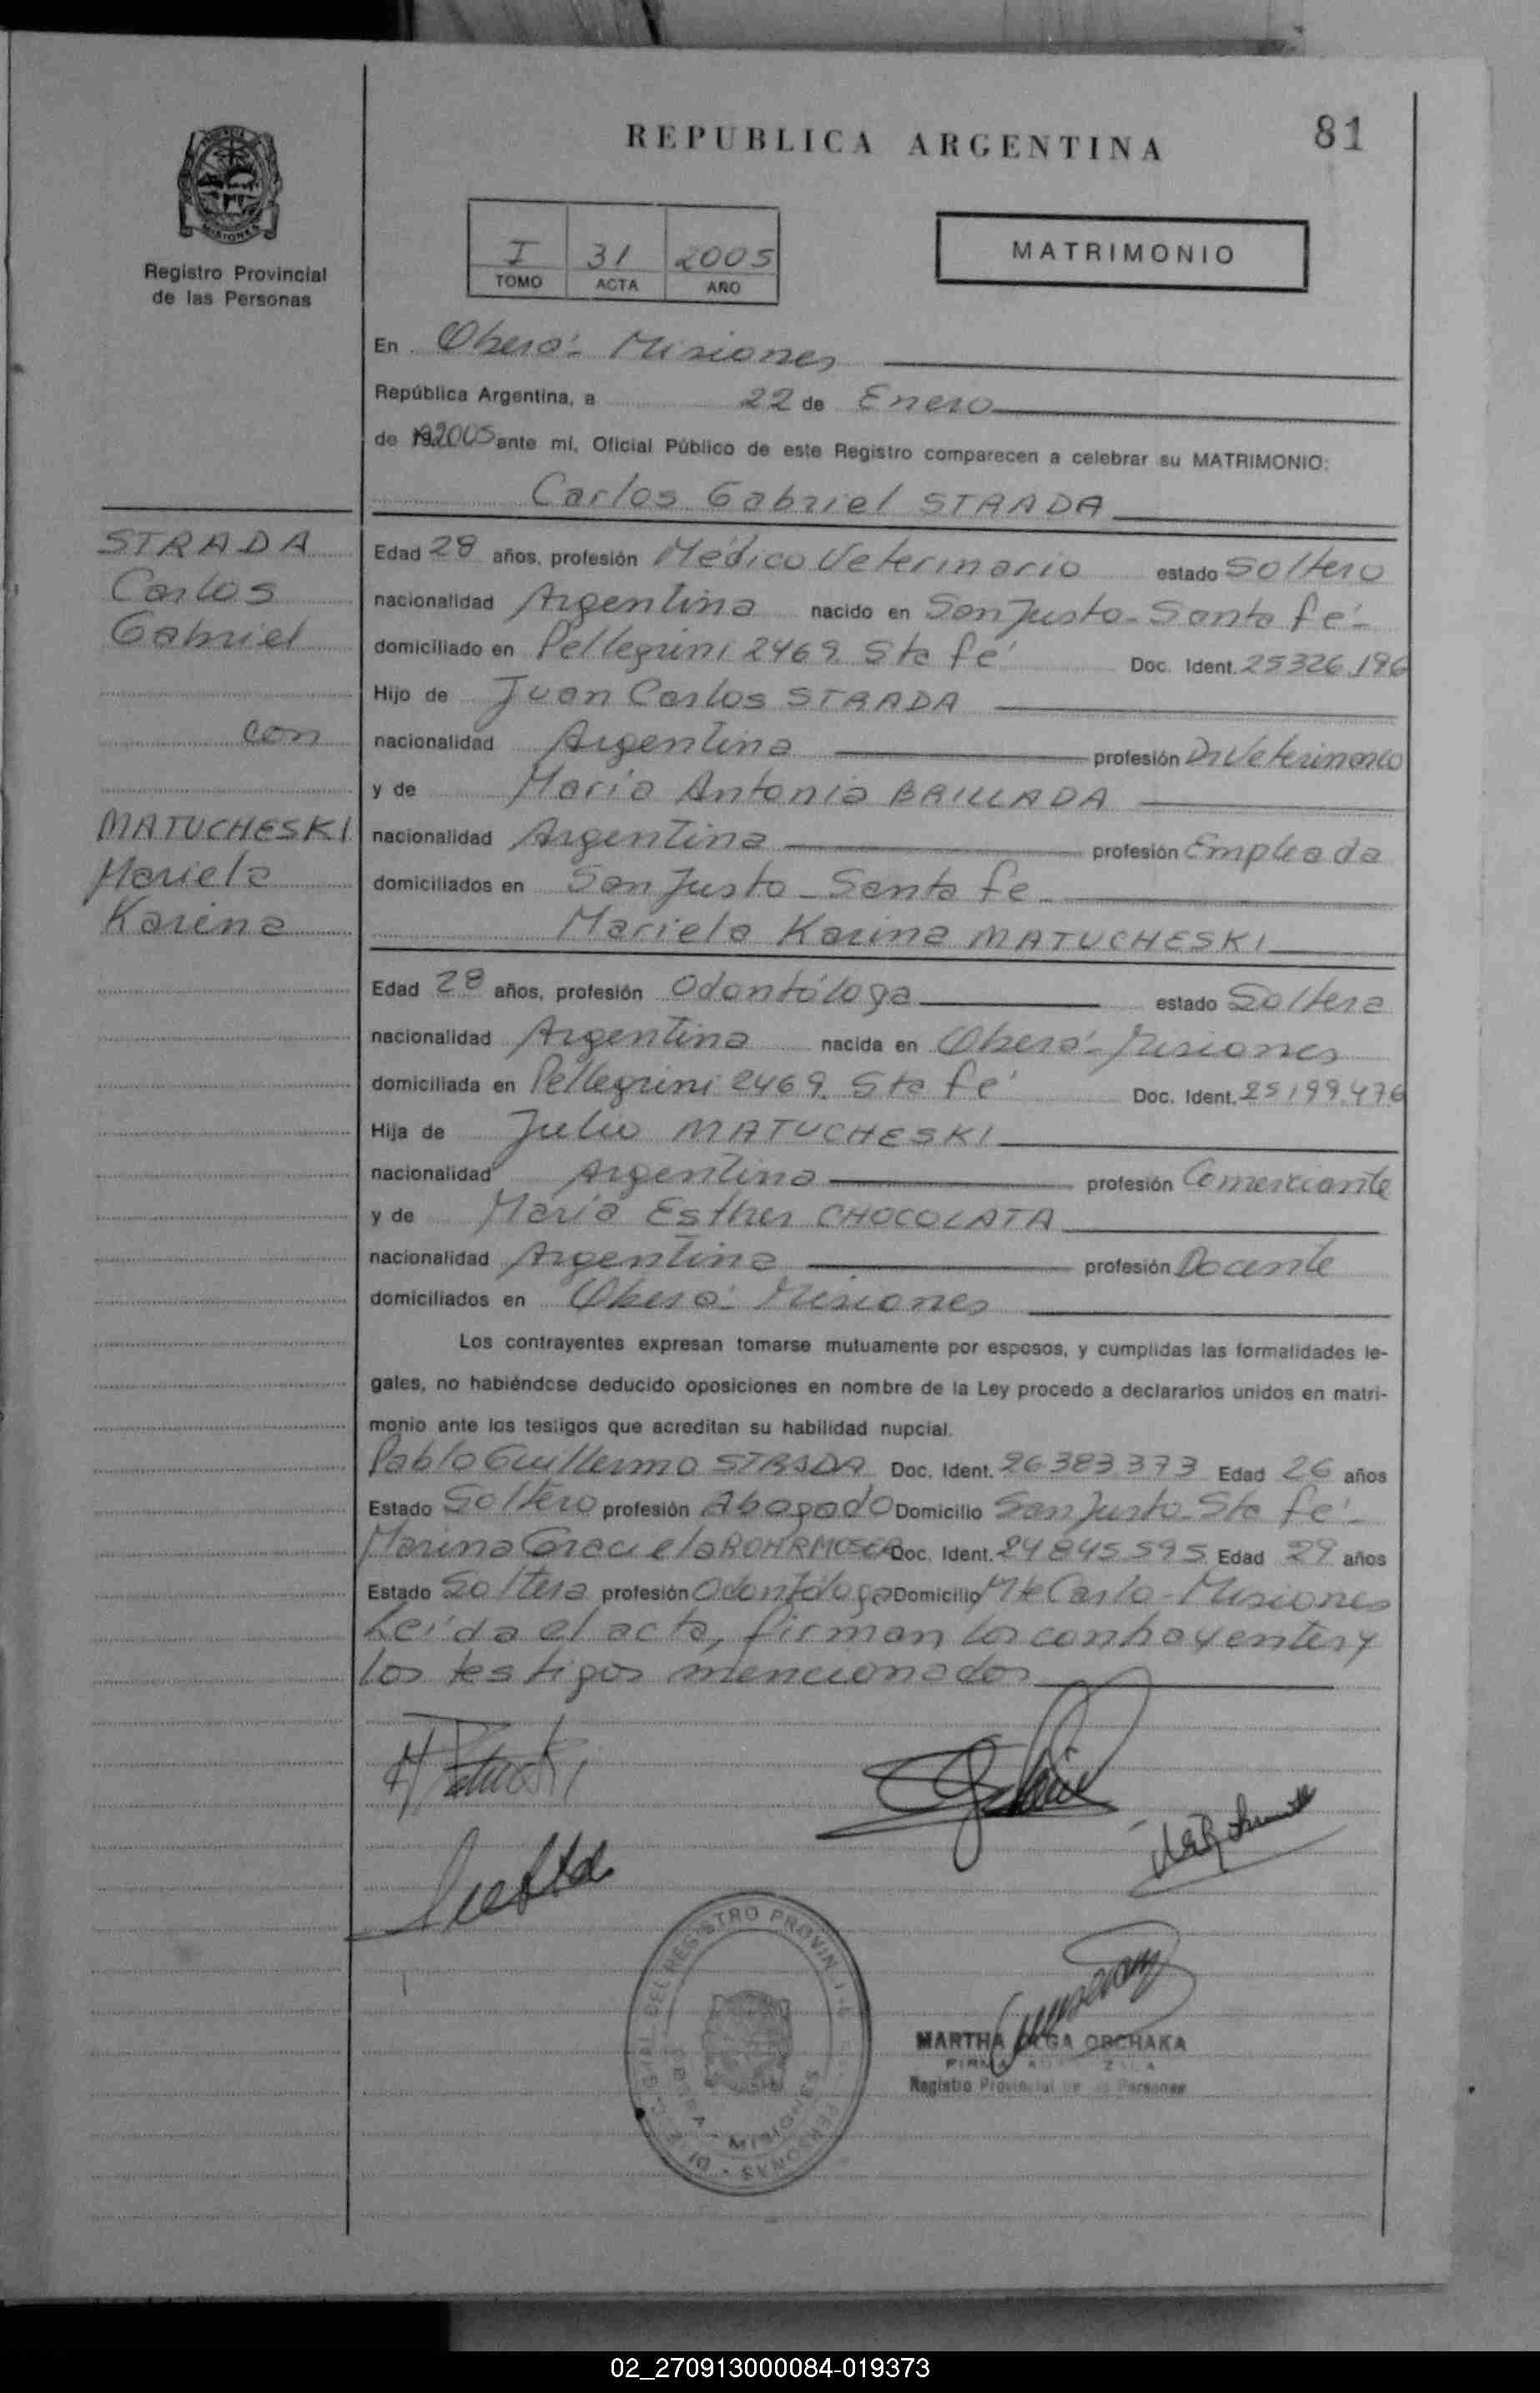 REPUBLICA ARGENTINA
81
Registro Provincial
de las Personas
I 31 2005
TOMO ACTA AÑO
MATRIMONIO
En Oberá - Misiones
República Argentina, a 22 de Enero
de 192005 ante mí, Oficial Público de este Registro comparecen a celebrar su MATRIMONIO:
Carlos Gabriel STRADA
STRADA
Carlos
Gabriel
con
MATUCHESKI
Mariela
Karina
Edad 28 años, profesión Médico Veterinario estado Soltero
nacionalidad Argentina nacido en San Justo - Santa fé -
domiciliado en Pellegrini 2469 Sta fé Doc. Ident. 25326.196
Hijo de Juan Carlos STRADA
nacionalidad Argentina profesión Dr Veterinario
y de María Antonia BRILLADA
nacionalidad Argentina profesión Empleada
domiciliados en San Justo - Santa fe
Mariela Karina MATUCHESKI
Edad 28 años, profesión Odontóloga estado Soltera
nacionalidad Argentina nacida en Oberá - Misiones
domiciliada en Pellegrini 2469 Sta fé Doc. Ident. 25199.476
Hija de Julio MATUCHESKI
nacionalidad Argentina profesión Comerciante
y de María Esther CHOCOLATA
nacionalidad Argentina profesión Docente
domiciliados en Oberá - Misiones
Los contrayentes expresan tomarse mutuamente por esposos, y cumplidas las formalidades le-
gales, no habiéndose deducido oposiciones en nombre de la Ley procedo a declararlos unidos en matri-
monio ante los testigos que acreditan su habilidad nupcial.
Pablo Guillermo STRADA Doc. Ident. 26383373 Edad 26 años
Estado Soltero profesión Abogado Domicilio San Justo - Sta fé -
Marina Graciela Doc. Ident. 24845595 Edad 29 años
Estado Soltera profesión Odontóloga Domicilio Mte Carlo - Misiones
Leída el acta, firman los contrayentes y
los testigos mencionados
MARTHA OLGA ORCHAKA
Registro Provincial de las Personas
02_270913000084-019373